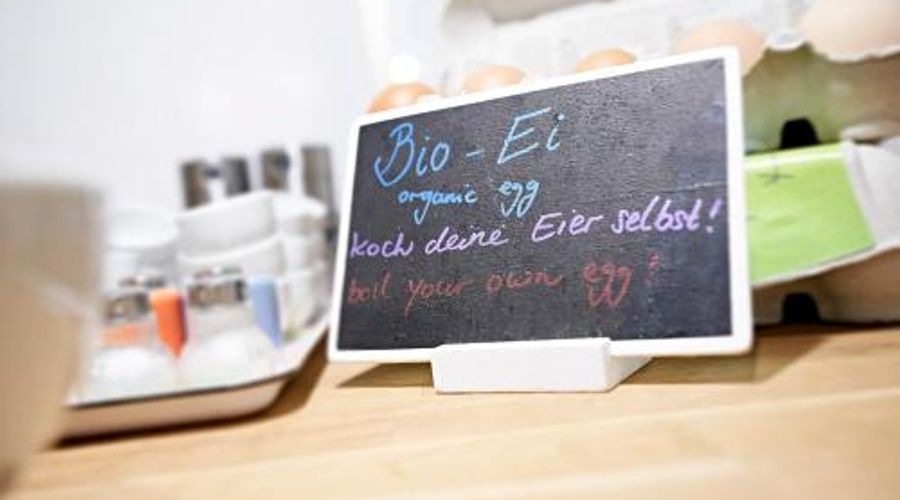 Bio - Ei
organic egg
koch deine Eier selbst!
boil your own egg!